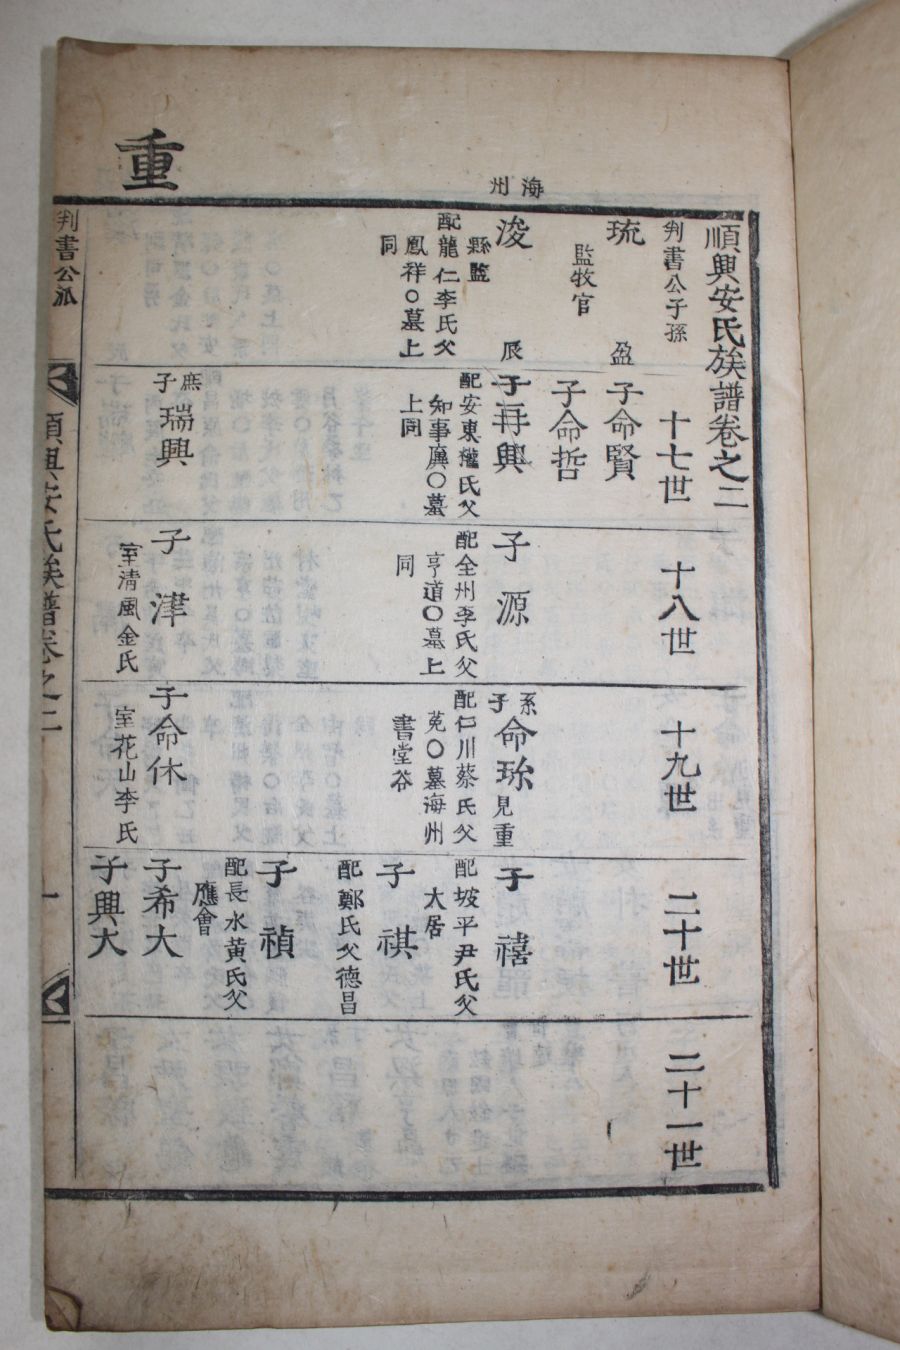 重
海州
順興安氏族譜卷之二
判書公子孫
十七世
十八世
十九世
二十世
二十一世
琉
監牧官
盈
浚
縣監
配龍仁李氏父
鳳祥○墓上
同
辰
子命賢
子命哲
子再興
配安東權氏父
知事廙○墓
上同
庶子
瑞興
子源
配全州李氏父
亨道○墓上
同
子津
室清風金氏
系子
命珎
見重
配仁川蔡氏父
○墓海州
書堂谷
子命休
室花山李氏
子禧
配坡平尹氏父
大居
子祺
配鄭氏父德昌
子禎
配長水黃氏父
應會
子希大
子興大
判書公派
順興安氏族譜卷之二
一